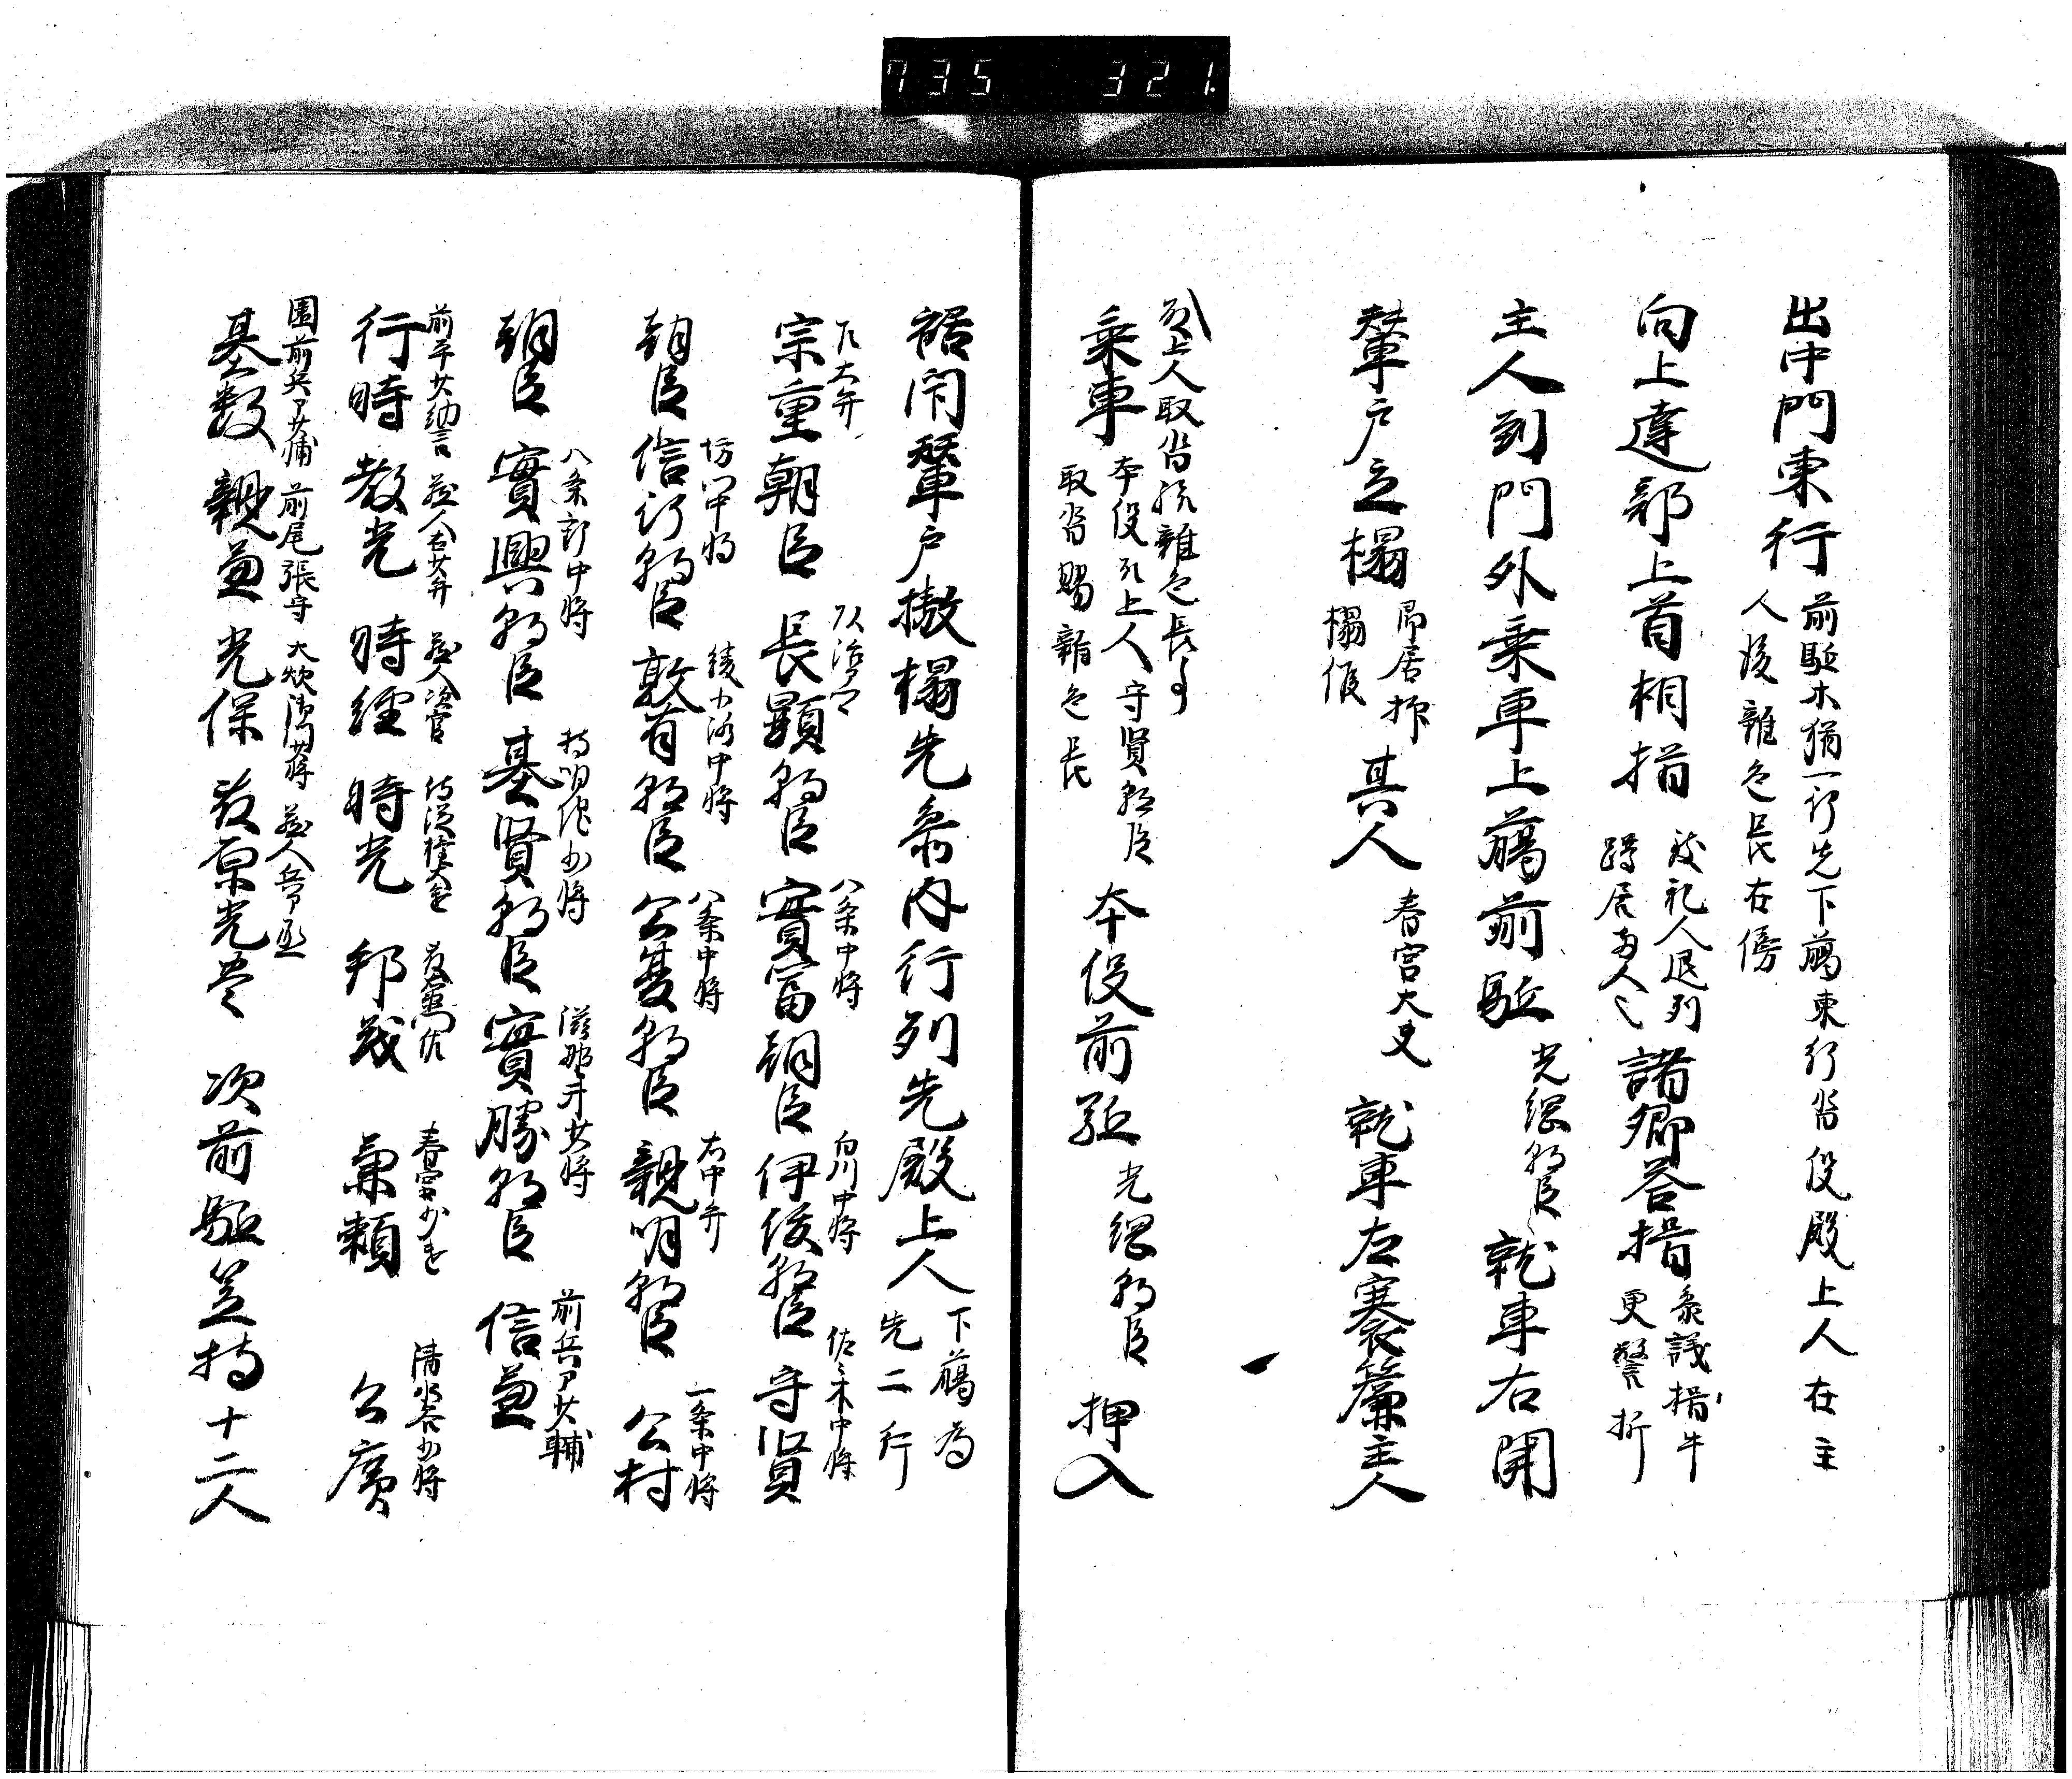 735 321
出中門東行
前駈木猶一行先下﨟東行沓役殿上人在主
人後雑色長在傍
向上達部上首相揖
致礼人退列
蹲居両人〻
諸卿答揖
参議揖牛
更警折
主人到門外乗車上﨟前駈
光綱朝臣
就車右開
輦戸立榻
即居
榻仮
其人
春宮大夫
就車左褰簾主人
上人取沓給雑色長
乗車
本役殿上人守賢朝臣
取沓賜雑色長
本役前駈
光綱朝臣
押入
裾閇輦戸撤榻先参内行列先殿上人
下﨟為
先二行
左大弁
宗重朝臣 長顕朝臣 實富朝臣 伊俊朝臣 守賢
八条中将 白川中将 佐々木中将
朝臣 信行朝臣 敦有朝臣 公夏朝臣 親明朝臣 公村
坊門中将 綾小路中将 八条中将 右中弁 一条中将
朝臣 實興朝臣 基賢朝臣 實勝朝臣 信兼
八条新中将 持明院少将 滋野井少将 前兵部少輔
行時 教光 時経 時光 邦茂 兼頼 公廣
前平少納言 蔵人右少弁 蔵人次官 侍従 清水谷少将
基数 親兼 光保 藤原光 次前駈笠持十二人
園前兵部少輔 前尾張守 大炊御門少将 蔵人兵部丞